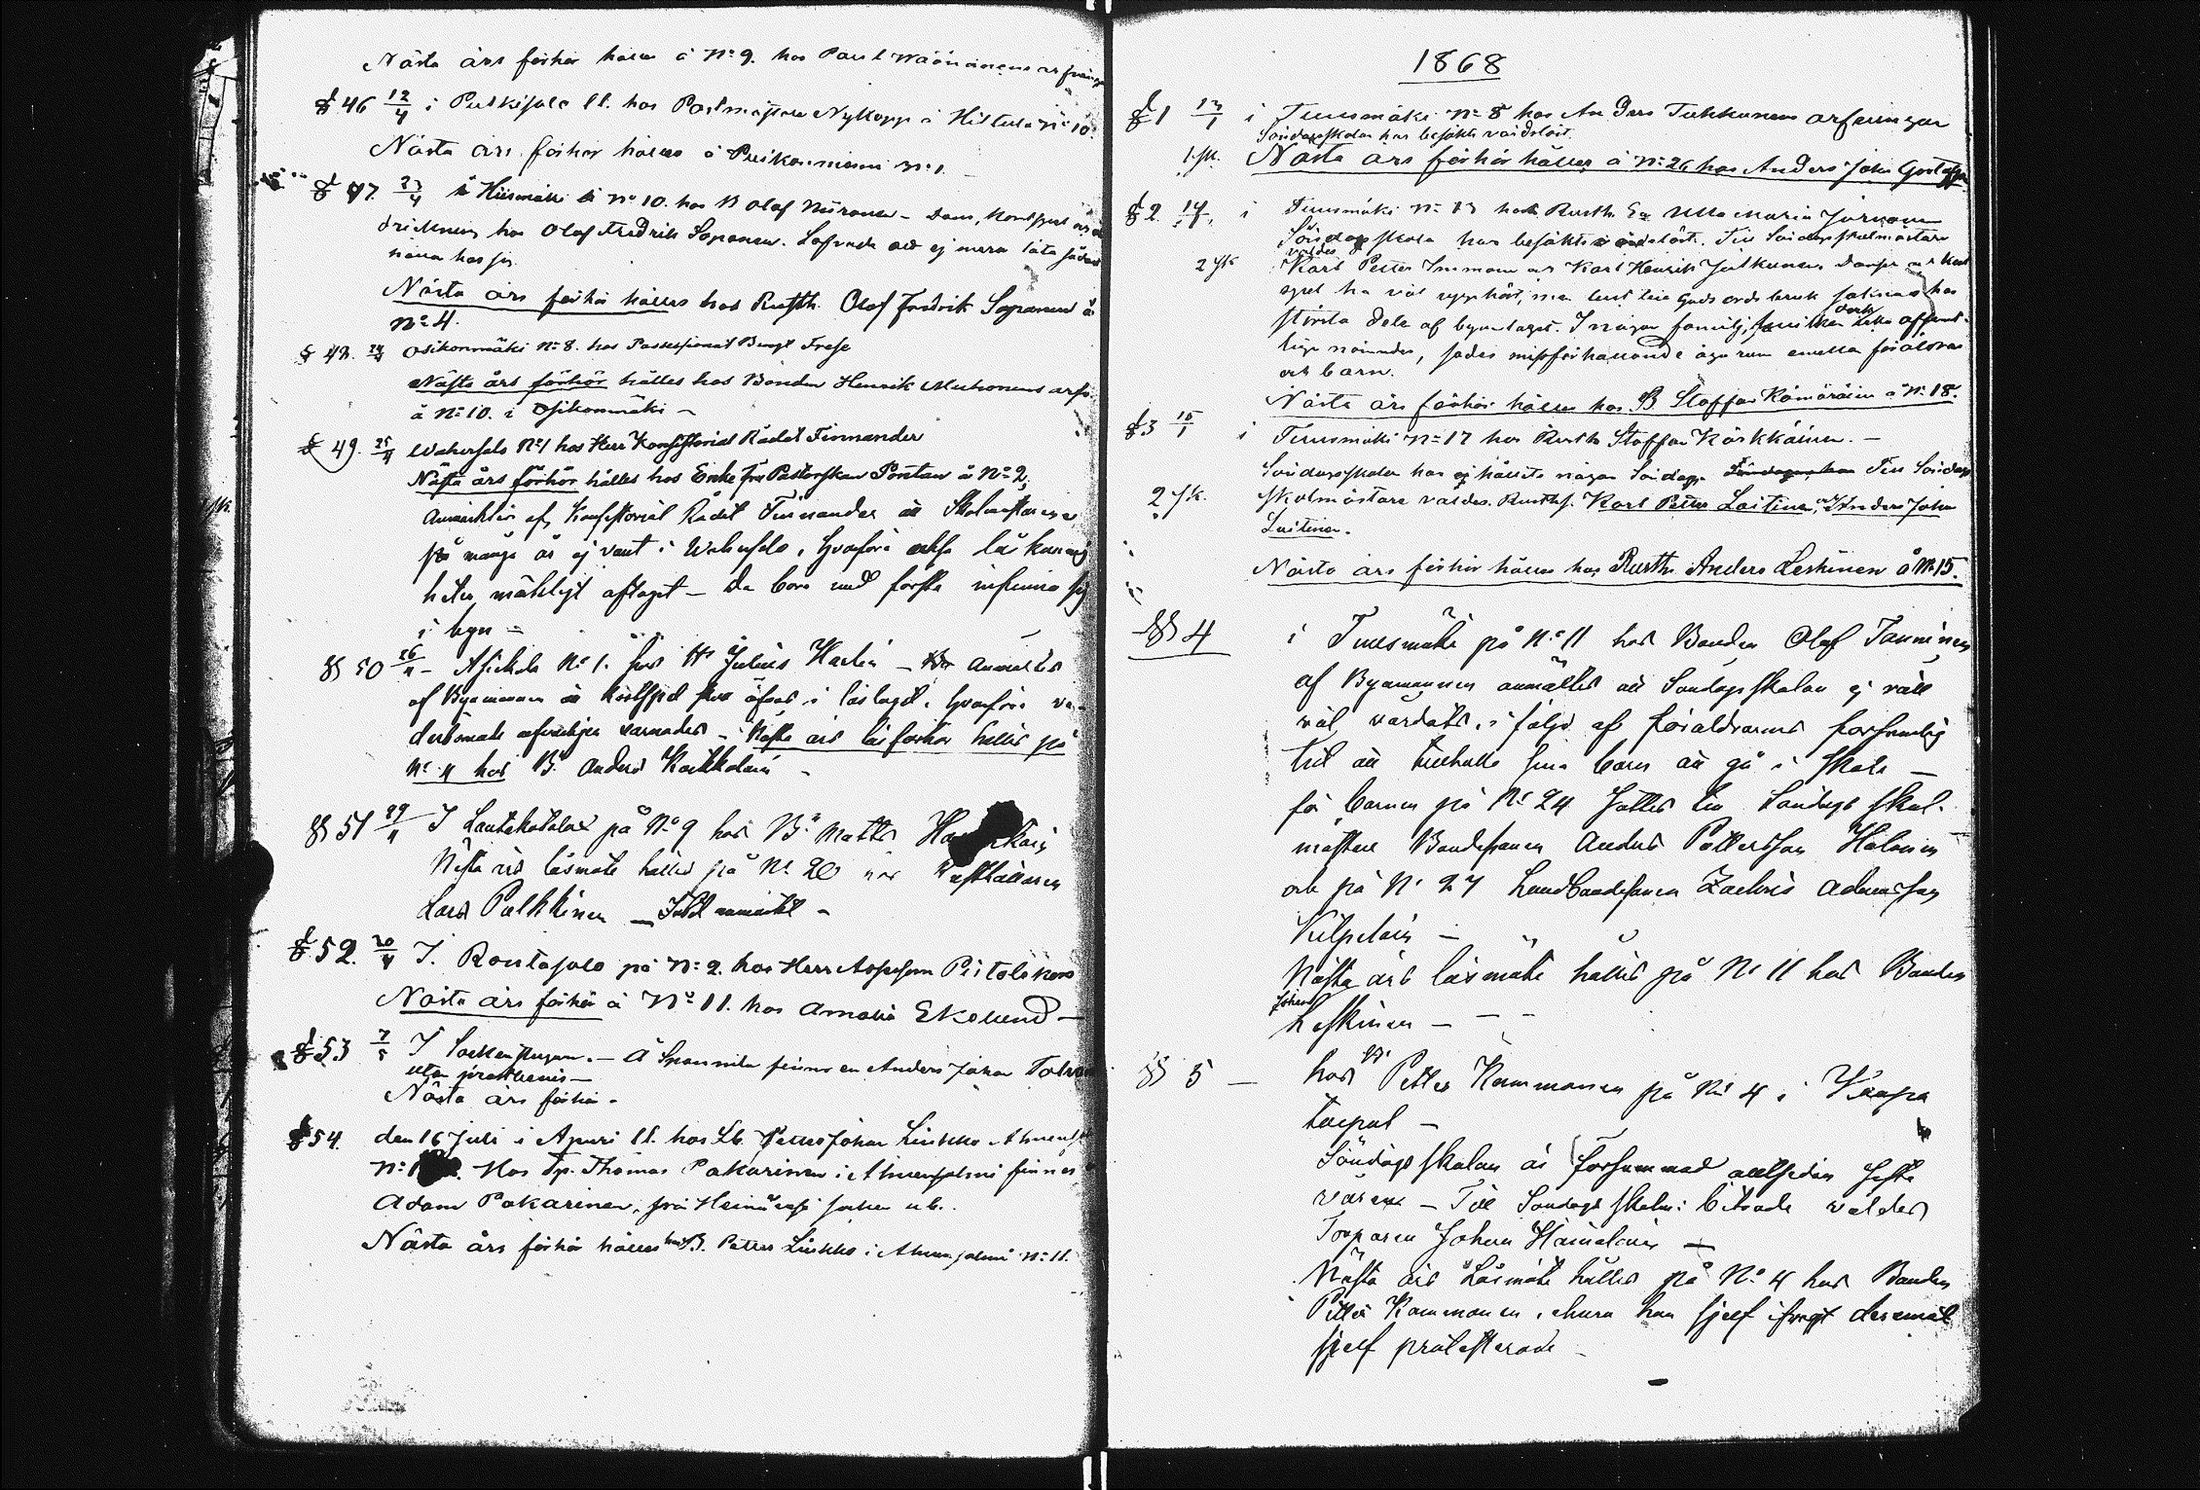 Nästa års förhör hålles å N:o 9. hos Paul Wäänänens arfvingar
§ 46 12/4 i Putkisalo 11. hos Postmästare Nykopp i Hiltula N:o 10.
Nästa års förhör hålles å Puikonniemi N:o 1.
§ 47. 23/4 å Hiismäki N:o 10. hos B Olof Miironen - Dans, kortspel och
drickning hos Olof Fredrik Soponen. Lofvade att ej mera låta sådant
hos sig.
Nästa års förhör hålles hos Rusth. Olof Fredrik Soponen å
N:o 4.
§ 48. 24/4 Osikonmäki N:o 8. hos Possessionat Bengt Frese
Nästa års förhör hålles hos Bonden Henrik Muhonens arfv.
å N:o 10. i Osikonmäki -
§ 49. 25/4 Wahersalo N:o 1 hos Herr Konsistorial Rådet Finnander
Nästa års förhör hålles hos Enke fru Pastorskan Pontan å N:o 2,
Anmärktes af Konsistorial Rådet Finnander att Skolmästaren
på många år ej varit i Wahersalo, hvarföre också läskunnig
heten märkligt aftagit - De bora med första infinna sig
i byn -
§§ 50 26/4 - Asikkala N:o 1. hos Hr Julius Hacklin - Anmältes
af Byamännen att kortspel äfvas i laslaget, hvarföre ve-
derbörande allvarligen varnades - Nästa års läsförhör hålles på
N:o 4 hos B. Anders Karkkolain -
§§ 51 29/4 I Lautakotalax på N:o 9 hos B: Matts
Nästa års läsmöte hålles på N:o 20 hos Rusthållaren
Lars Pulkkinen - Intet anmärkt -
§ 52. 30/4 I. Rantasalo på N:o 2. hos Herr Assessorn Pistolekors
Nästa års förhör å N:o 11. hos Amalia Ekelund -
§ 53 7/5 I Sockenstugan. - Å Spannila finnes en Anders Johan
utan prestbevis -
Nästa års förhör -
§ 54. den 16 Juli i Apuri 11. hos Lb. Petter Johan Liukko Ahvensalmi
N:o 1 Hos Tp. Thomas Pakarinen i Ahvensalmi finnes
Adam Pakarinen, från Heinävesi socken u.b.
Nästa års förhör hålles hos B. Petter Liukko i Ahvensalmi N:o 11.
1868
§ 1 13/1 i Tuusmäki N:o 8 hos Anders Tukkunens arfvingar
Söndagsskolan har besökts vårdslöst.
1.sk. Nästa års förhör hålles å N:o 26 hos Anders Johan
§ 2 14/1 i Tuusmäki N:o 13 hos Rusth. Ea Ulla Maria Järvinen
Söndagsskola har besökts vårdslöst. Till Söndagsskolmästare
valdes
2 sk Karl Petter Immonen och Karl Henrik Jutkunen Danser och kort
spel ha väl upphört, men lust till Guds ords bruk saknas hos
största dela af byalaget. I någon familj, hvilken dock icke offent-
ligen nämndes, sades missförhållande äga rum emellan föräldrar
och barn.
Nästa års förhör hålles hos B Staffan Kämäräinen å N:o 18.
§ 3 15/1 i Tuusmäki N:o 17 hos Rusth Staffan Kärkkäinen. -
Söndagsskolan har ej hållits någon Söndag. Till Söndags
2 sk. skolmästare valdes Rusths. Karl Petter Laitinen, och Anders Johan
Laitinen.
Nästa års förhör hålles hos Rusth. Anders Leskinen å N:o 15.
§§ 4 i Tuusmäki på N:o 11 hos Bonden Olof Tanninen
af Byamannen anmältes att Söndagsskolan ej rätt
väl vårdats, i följd af föräldrarnes försumlig
het att tillhålla sina barn att gå i skola -
för barnen på N:o 24 sattes till Söndags skol-
mästare Bondesonen Anders Pettersson Halonen
och på N:o 27 Landbondesonen Zachris Adamsson
Kilpeläin -
Nästa års läsmöte hålles på N:o 11 hos Bonden
Johan
Leskinen - - -
§§ 5 - hos B. Petter Kammonen på N:o 4 i Kaupa
taipal -
Söndags skolan är försummad alltsedan sista
våren - Till Söndags skolan: biträde valdes
Torparen Johan Hämäläin -
Nästa års Läsmöte hålles på N:o 4 hos Bonden
Petter Kammonen, ehuru han sjelf deremot
sjelf protesterade -